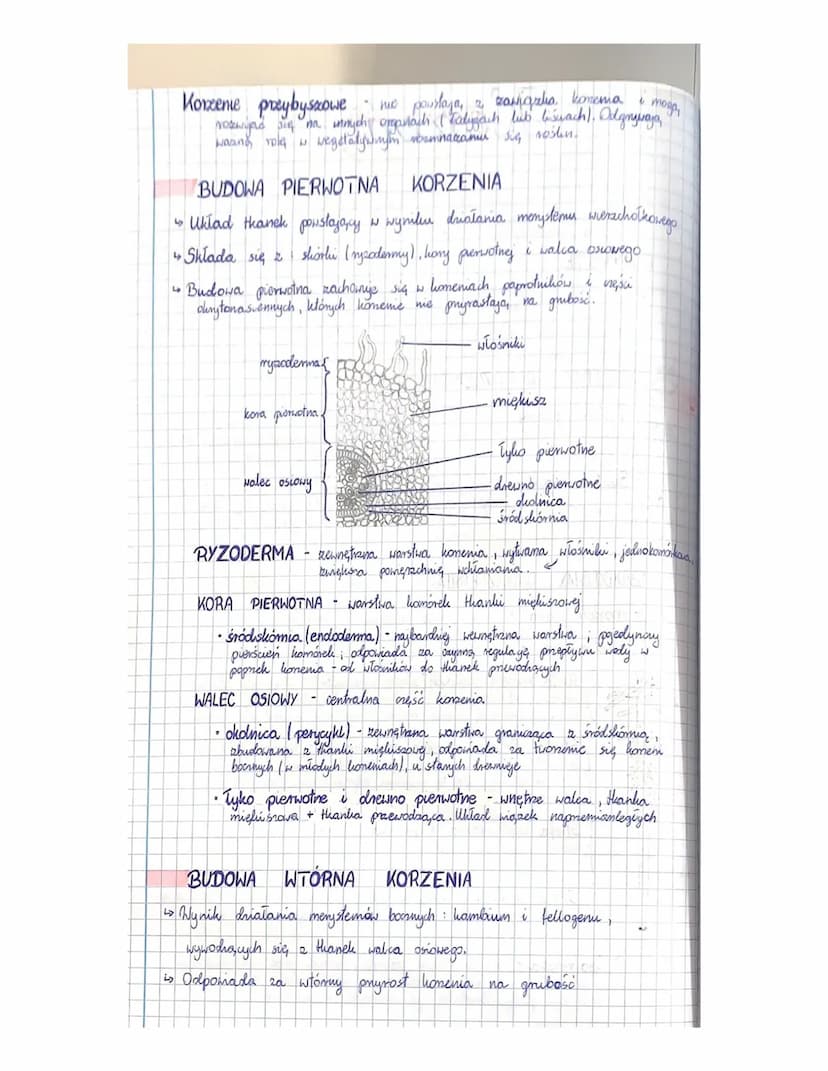 Korzenie przybyszowe - nie powstają z zawiązka korzenia i mogą
rozwijać się na innych organach (łodygach lub liściach). Odgrywają
ważną rolę w wegetatywnym rozmnażaniu się roślin.
BUDOWA PIERWOTNA KORZENIA
↳ Układ tkanek powstający w wyniku działania merystemu wierzchołkowego
↳ Składa się z: skórki (ryzodermy), kory pierwotnej i walca osiowego
↳ Budowa pierwotna zachowuje się w korzeniach paprotników i części
okrytonasiennych, których korzenie nie przyrastają na grubość.
włośniki
ryzoderma
miękisz
kora pierwotna
łyko pierwotne
walec osiowy
drewno pierwotne
okolnica
śródskórnia
RYZODERMA - zewnętrzna warstwa korzenia, wytwarza włośniki, jednokomórkowa,
zwiększa powierzchnię wchłaniania.
KORA PIERWOTNA - warstwa komórek tkanki miękiszowej
• śródskórnia (endoderma) - najbardziej wewnętrzna warstwa; pojedynczy
pierścień komórek, odpowiada za czynną regulację przepływu wody w
poprzek korzenia - od włośników do tkanek przewodzących
WALEC OSIOWY - centralna część korzenia
• okolnica (perycykl) - zewnętrzna warstwa granicząca z śródskórnią,
zbudowana z tkanki miękiszowej, odpowiada za tworzenie się korzeni
bocznych (w młodych korzeniach), w starych drewnieje
• Łyko pierwotne i drewno pierwotne - wnętrze walca, tkanka
miękiszowa + tkanka przewodząca. Układ wiązek naprzemianległych
BUDOWA WTÓRNA KORZENIA
↳ Wynik działania merystemów bocznych: kambium i fellogenu,
wywodzących się z tkanek walca osiowego.
↳ Odpowiada za wtórny przyrost korzenia na grubość